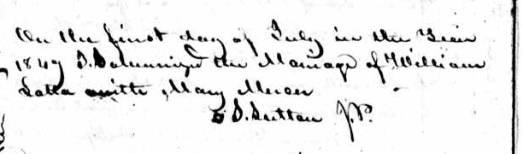 On the first day of July in the Year
1847 I Solemnized the Marriage of William
Latta with Mary
S. Sutton J.P.